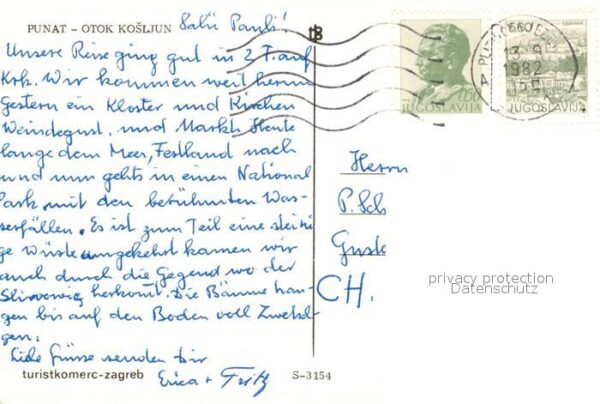 PUNAT – OTOK KOŠLJUN
Salü Pauli!
Unsere Reise ging gut in 2 T. auf
Krk. Wir kommen weit herum
Gestern ein Kloster und Kirchen
Weindegust. und Markt. Heute
lange dem Meer, Festland nach
und nun gehts in einen National
Park mit den berühmten Was-
serfällen. Es ist zum Teil eine steini
ge Wüste umgekehrt kamen wir
auch durch die Gegend wo der
herkomt. Die Bäume han-
gen bis auf den Boden voll Zwetsch
gen.
Liebe Grüsse senden Dir
Erica + Fritz
turistkomerc-zagreb
S-3154
JUGOSLAVIJA
6.60
JUGOSLAVIJA
13. 9.
1982
Herrn
P. Sch
Guste
CH.
privacy protection
Datenschutz